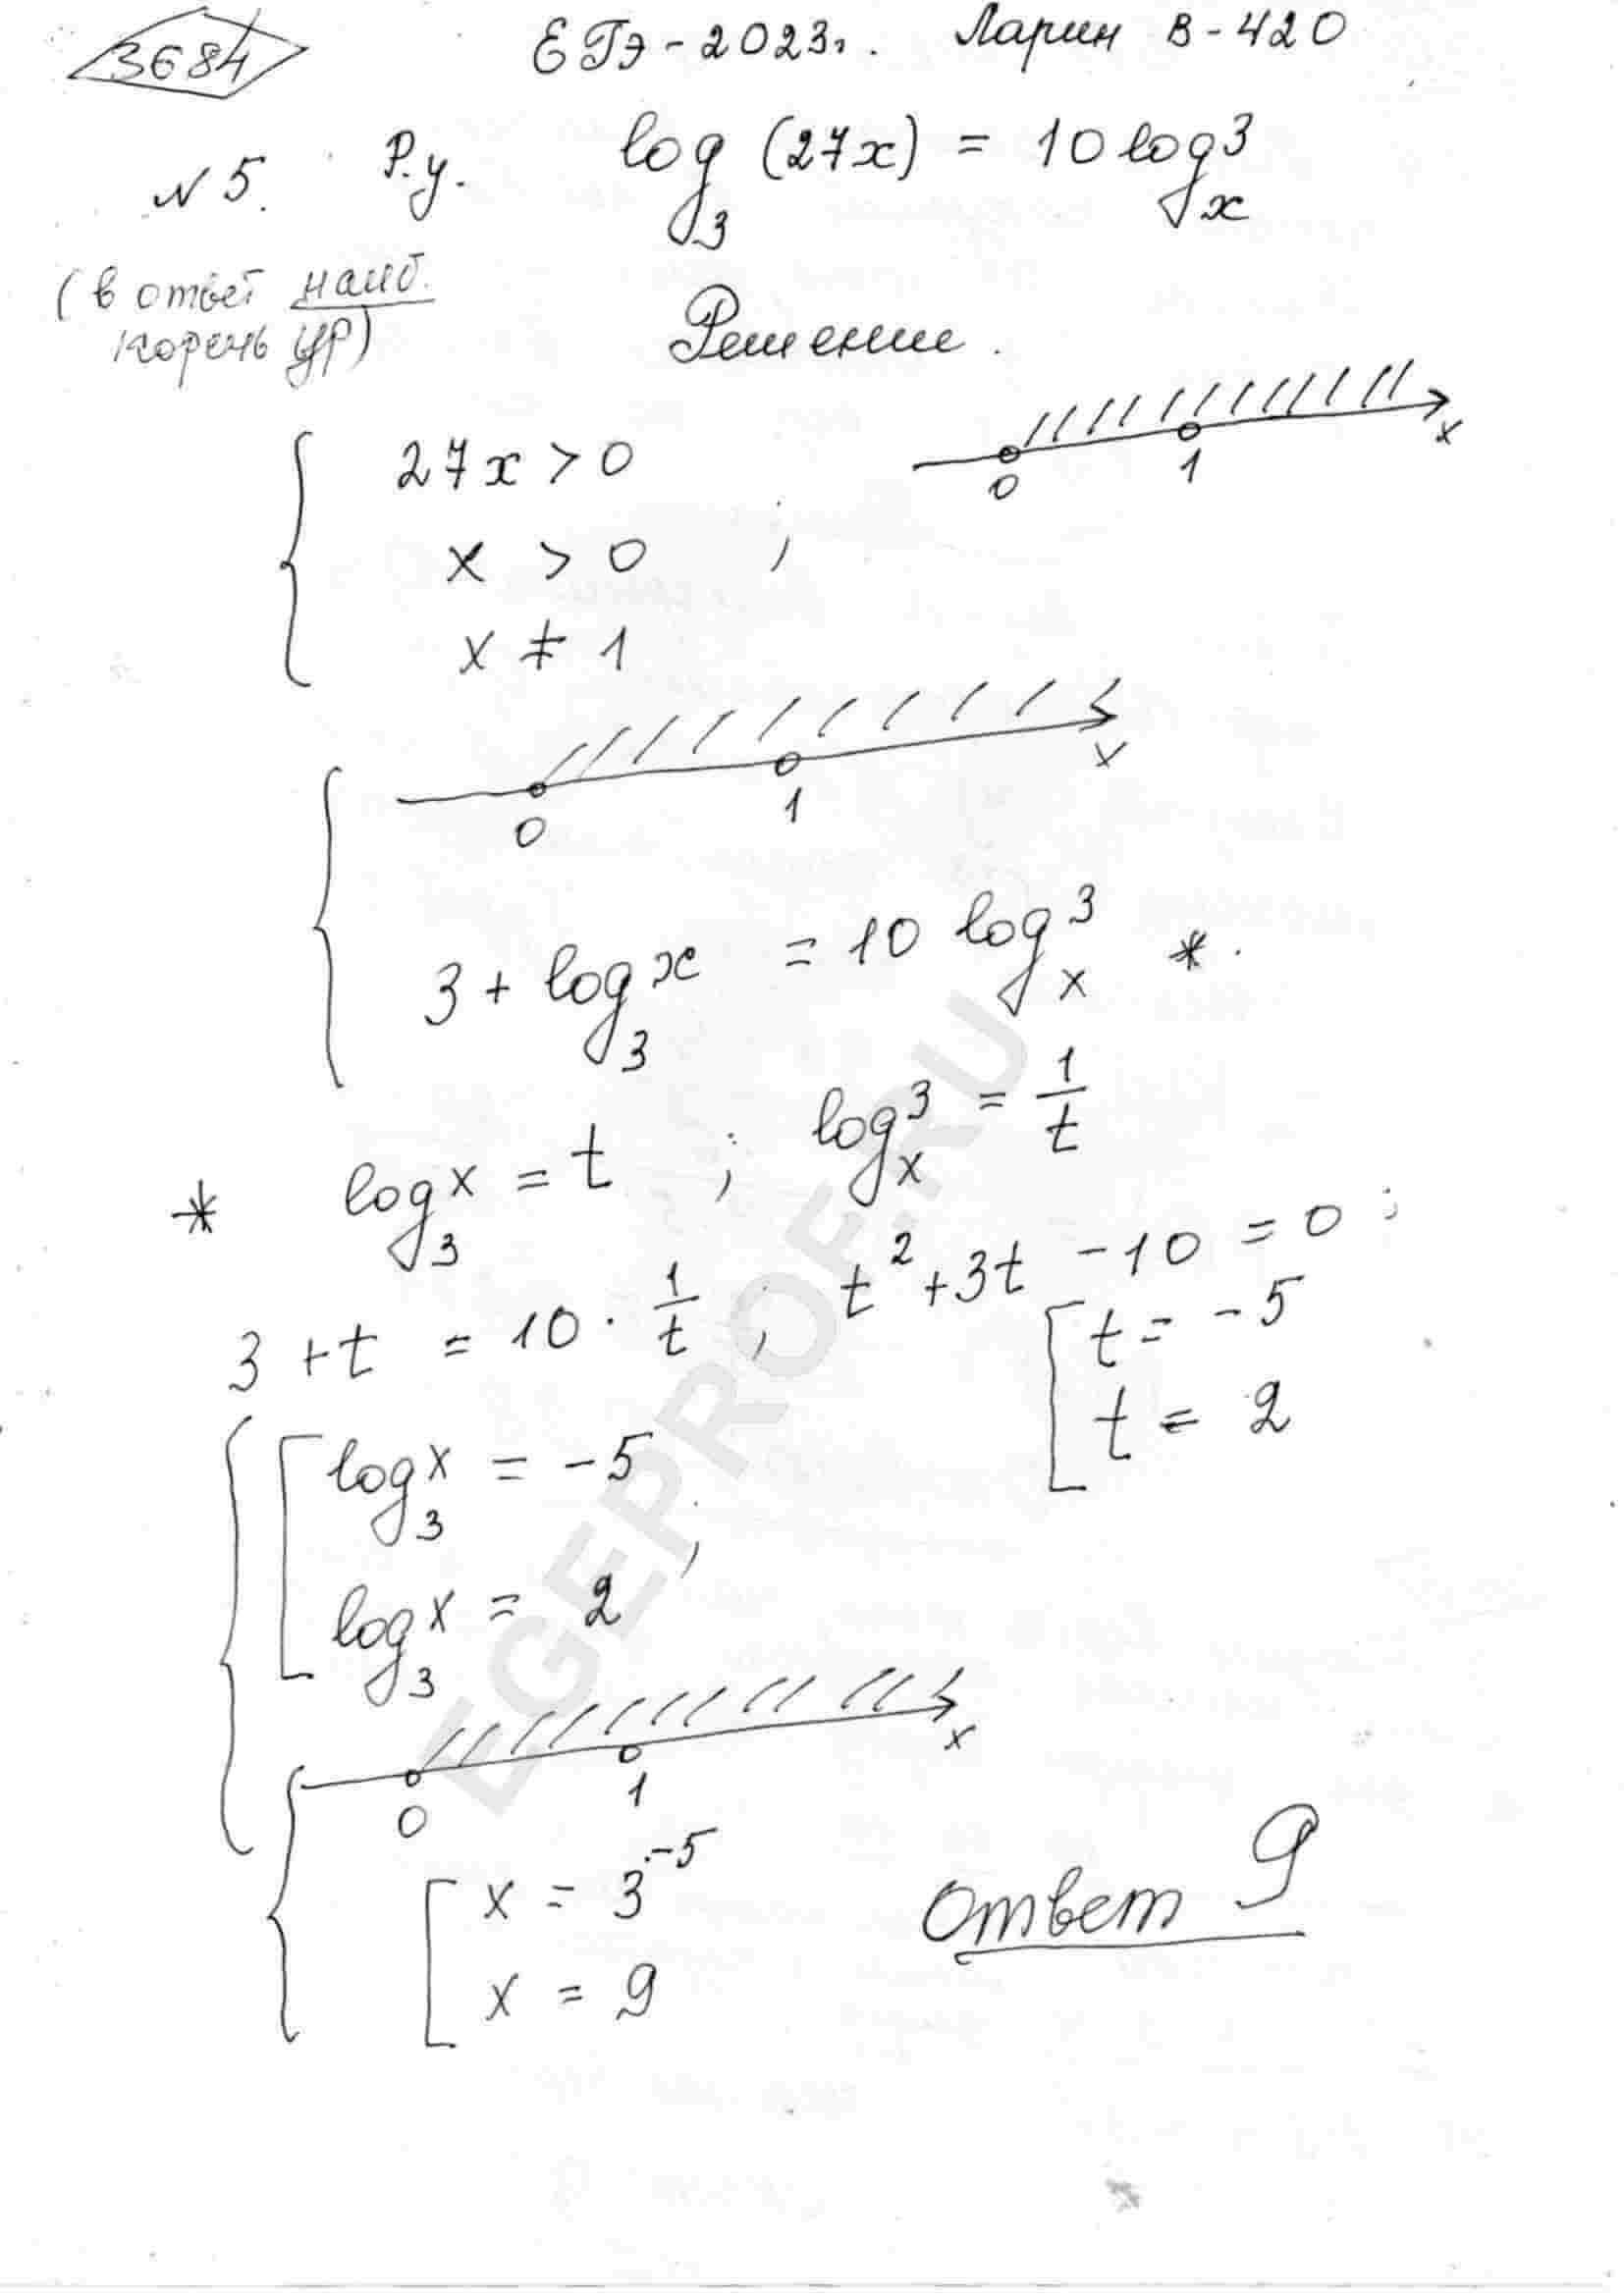 3684
ЕГЭ-2023г. Ларин В-420
№5. Р.у. log₃(27x) = 10 logₓ3
(в ответ наиб. корень ур)
Решение.
27x > 0
x > 0 ;
x ≠ 1
0 1 x
0 1 x
3 + log₃x = 10 logₓ3 *.
* log₃x = t ; logₓ3 = 1/t
3 + t = 10 · 1/t ; t² + 3t - 10 = 0 ;
t = -5
t = 2
log₃x = -5
log₃x = 2 ,
0 1 x
x = 3⁻⁵
x = 9
Ответ 9
EGEPROF.RU